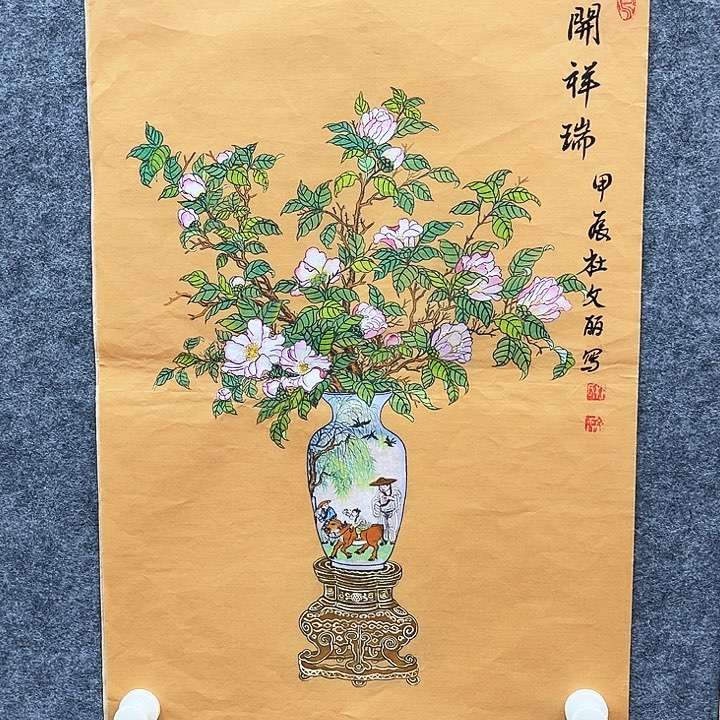 開祥瑞
甲辰杜文丽写